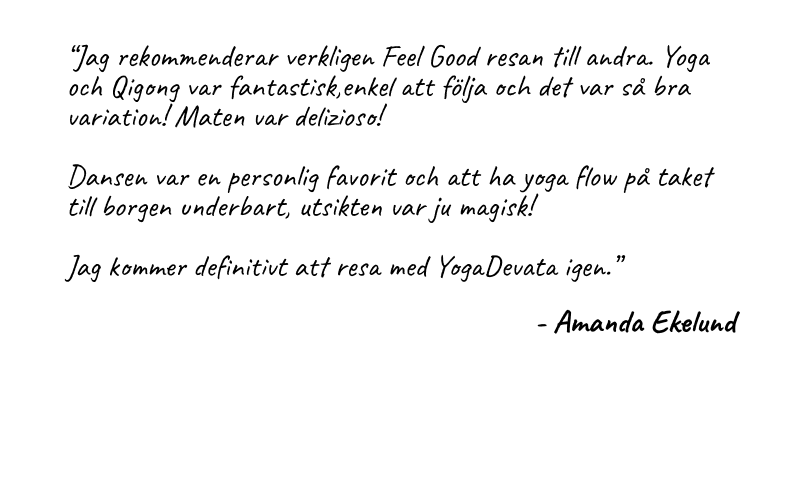 “Jag rekommenderar verkligen Feel Good resan till andra. Yoga
och Qigong var fantastisk,enkel att följa och det var så bra
variation! Maten var delizioso!
Dansen var en personlig favorit och att ha yoga flow på taket
till borgen underbart, utsikten var ju magisk!
Jag kommer definitivt att resa med YogaDevata igen.”
- Amanda Ekelund